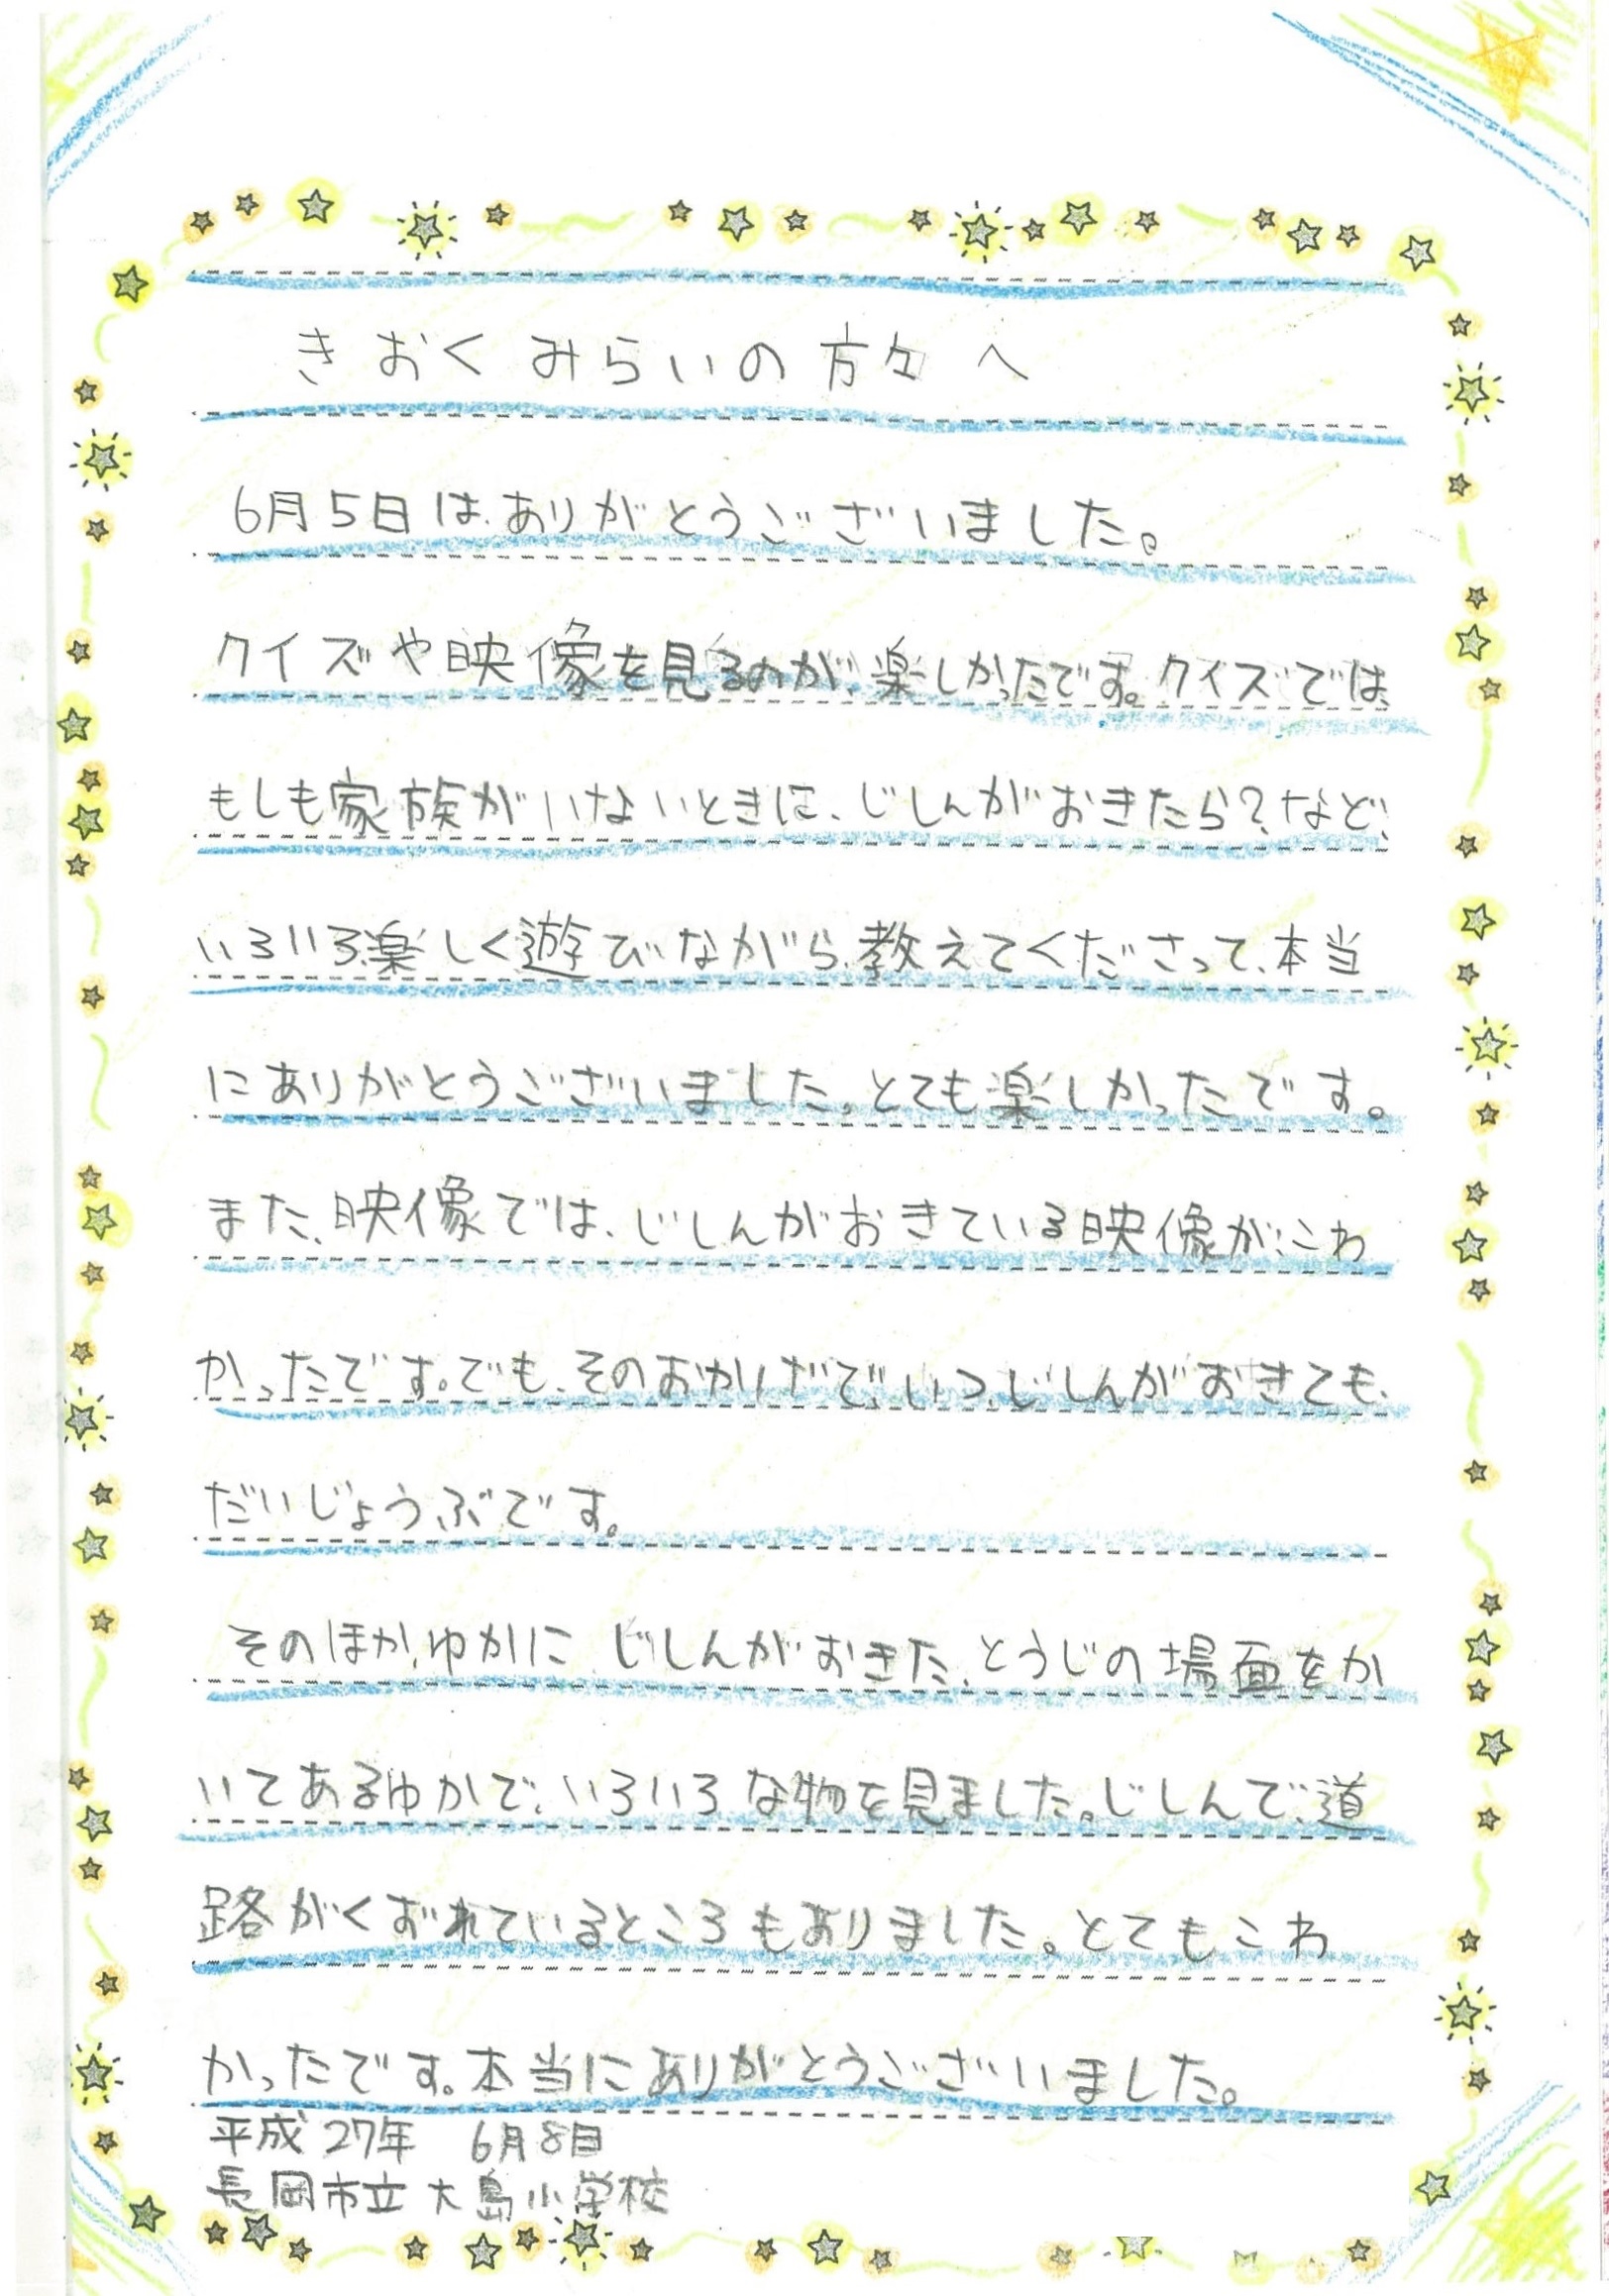 きおくみらいの方々へ
6月5日は、ありがとうございました。
クイズや映像を見るのが、楽しかったです。クイズでは、
もしも家族がいないときに、じしんがおきたら？など、
いろいろ楽しく遊びながら、教えてくださって、本当
にありがとうございました。とても楽しかったです。
また、映像では、じしんがおきている映像が、こわ
かったです。でも、そのおかげで、いつ、じしんがおきても、
だいじょうぶです。
そのほか、ゆかに じしんがおきた、とうじの場面をか
いてあるゆかで、いろいろな物を見ました。じしんで、道
路がくずれているところもありました。とてもこわ
かったです。本当にありがとうございました。
平成27年 6月8日
長岡市立大島小学校